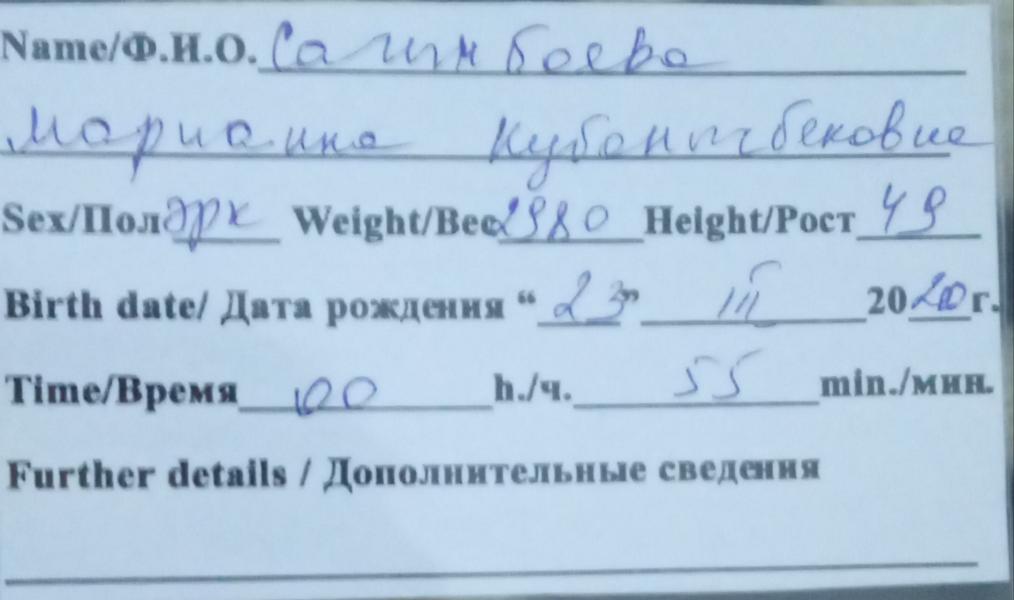 Name/Ф.И.О. Салимбоева
Марианна Кубанычбековна
Sex/Пол Эрк Weight/Вес 2980 Height/Рост 49
Birth date/ Дата рождения “ 23 ” III 2020 г.
Time/Время 00 h./ч. 55 min./мин.
Further details / Дополнительные сведения